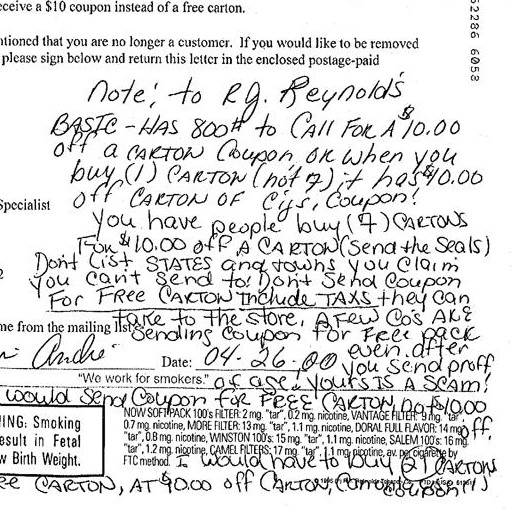 eceive a $10 coupon instead of a free carton.
52286 6058
ntioned that you are no longer a customer. If you would like to be removed
please sign below and return this letter in the enclosed postage-paid
Note: to RJ. Reynold's
BASIC - HAS 800# to CALL FOR A $10.00
off a CARTON Coupon, OR when you
buy (1) CARTON (not 7) it has $10.00
Specialist
off CARTON OF Cigs, Coupon!
You have people buy (7) CARTONS
FOR $10.00 off A CARTON (Send the Seals)
Don't List STATES and towns You Claim
You can't Send to! Don't Send Coupon
For FREE CARTON include TAXS they can
me from the mailing list
take to the store, A Few Co's ARE
Sending Coupon for Free pack
even after
Andre
Date: 04-26-00
you Send proff
"We work for smokers."
of age. Yours IS A SCAM!
would Send Coupon for FREE CARTON, not $10.00
off.
NING: Smoking
esult in Fetal
w Birth Weight.
NOW SOFT PACK 100's FILTER: 2 mg. "tar", 0.2 mg. nicotine, VANTAGE FILTER: 9 mg. "tar",
0.7 mg. nicotine, MORE FILTER: 13 mg. "tar", 1.1 mg. nicotine, DORAL FULL FLAVOR: 14 mg.
"tar", 0.8 mg. nicotine, WINSTON 100's: 15 mg. "tar", 1.1 mg. nicotine, SALEM 100's: 16 mg.
"tar", 1.2 mg. nicotine, CAMEL FILTERS: 17 mg. "tar", 1.1 mg. nicotine, av. per cigarette by
FTC method.
I would have to buy (2) CARTONS
ee CARTON, AT $10.00 off CARTON,
coupon!!)